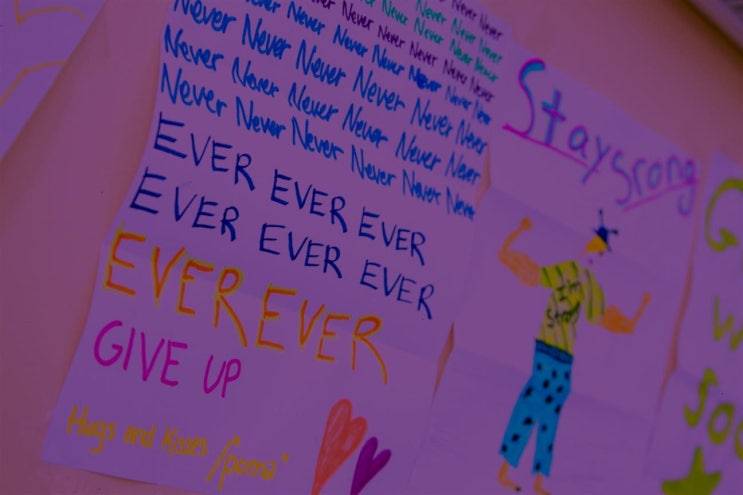 Never Never
Never Never Never
Never Never Never Never Never
Never Never Never Never Never Never
Never Never Never Never Never Never
Never Never Never Never Never Never
Never Never Never Never Never Never
EVER EVER EVER
EVER EVER EVER
EVER EVER
GIVE UP
Hugs and Kisses /"poma"
Stay srong
I'm
strong